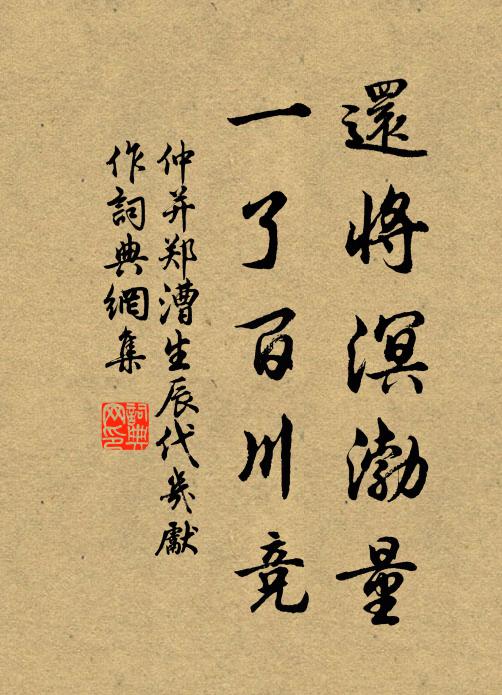 還將溟渤量
一了百川竞
仲并郑漕生辰代券獻
作詞典網集
詞典網印